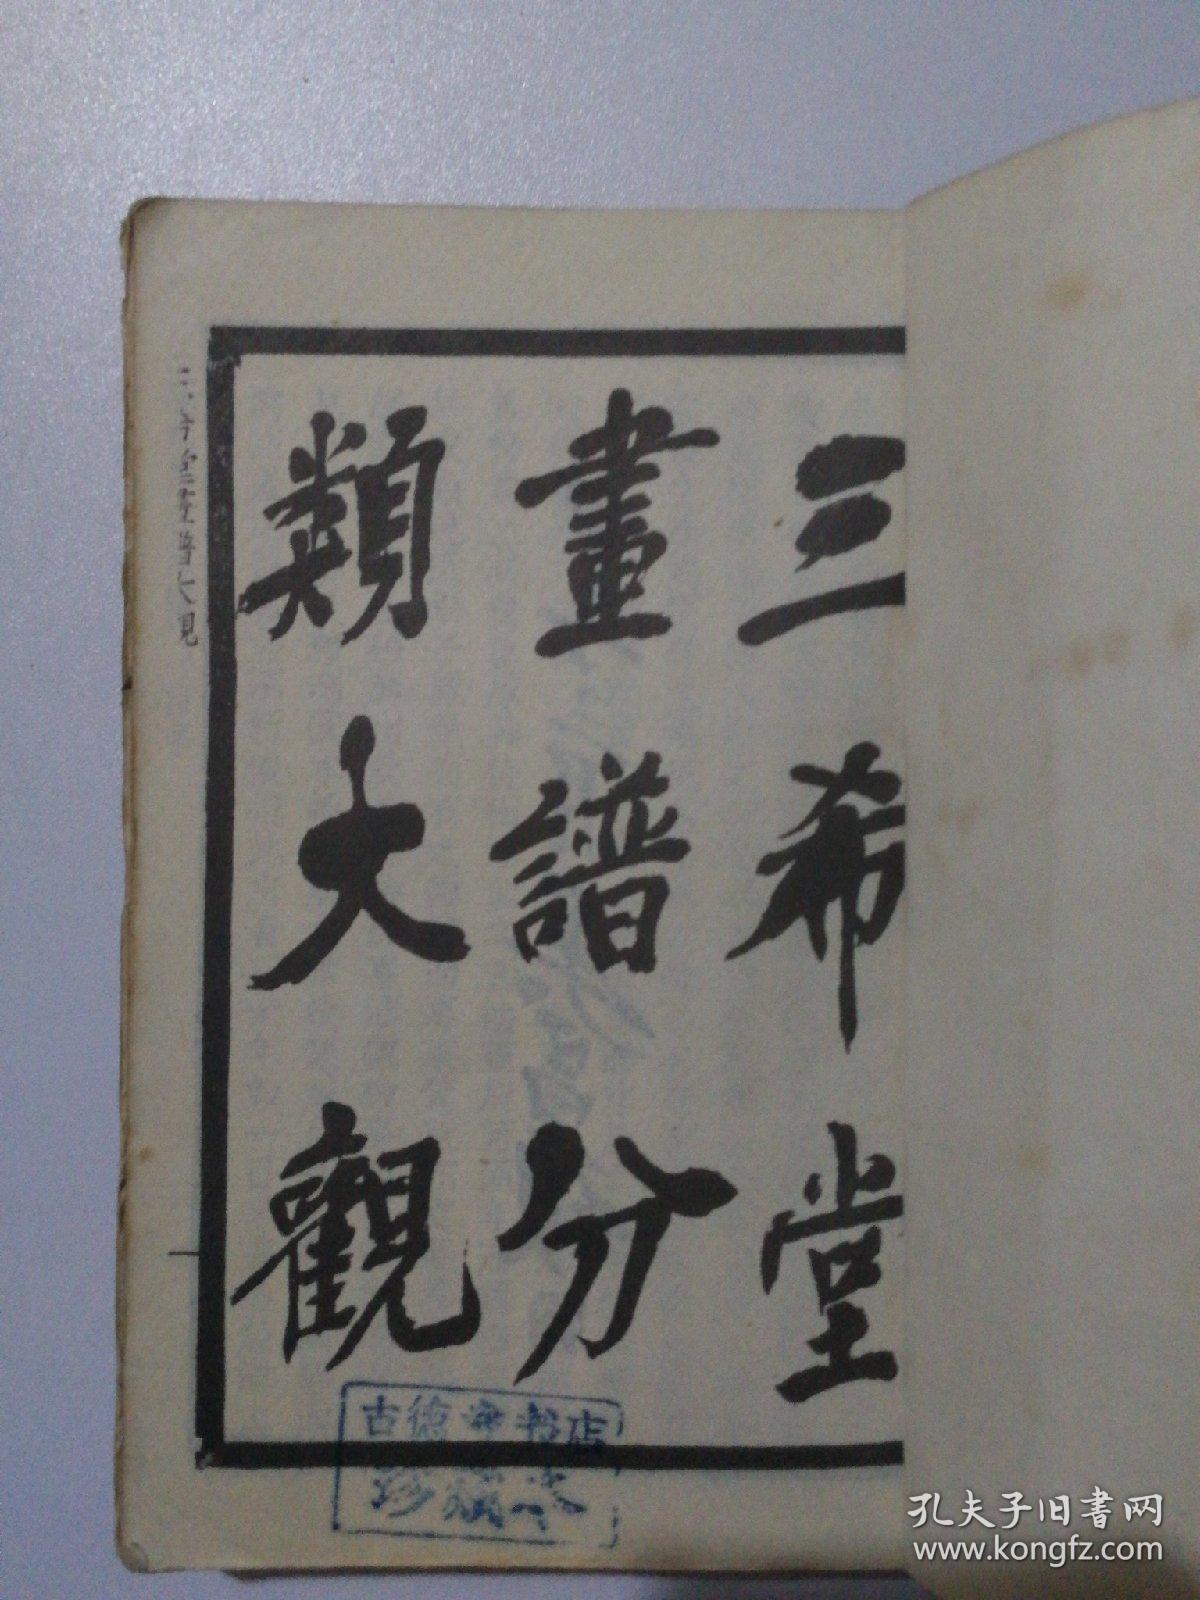 三希堂
畫譜分
類大觀
三希堂畫譜大觀
古德堂书店
孔夫子旧書网
www.kongfz.com